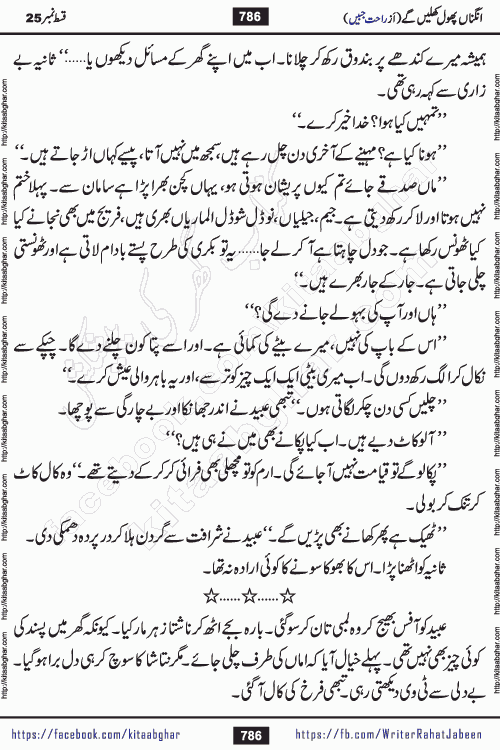 انگناں پھول کھلیں گے (از راحت جبیں)
786
قسط نمبر 25
ہمیشہ میرے کندھے پر بندوق رکھ کر چلانا۔ اب میں اپنے گھر کے مسائل دیکھوں یا......‘‘ ثانیہ بے
زاری سے کہہ رہی تھی۔
’’تمہیں کیا ہوا؟ خدا خیر کرے۔‘‘
’’ہونا کیا ہے؟ مہینے کے آخری دن چل رہے ہیں، سمجھ میں نہیں آتا، پیسے کہاں اڑ جاتے ہیں۔‘‘
’’ماں صدقے جائے تم کیوں پریشان ہوتی ہو، یہاں کچن بھرا پڑا ہے سامان سے۔ پہلا ختم
نہیں ہوتا اور لا کر رکھ دیتی ہے۔ جیم، جیلیاں، نوڈل شوڈل الماریاں بھری ہیں، فریج میں بھی نجانے کیا
کیا ٹھونس رکھا ہے۔ جو دل چاہتا ہے آ کر لے جا...... یہ تو بکری کی طرح پستے بادام لاتی ہے اور ٹھونستی
چلی جاتی ہے۔ جار کے جار بھرے ہیں۔‘‘
’’ہاں اور آپ کی بہو لے جانے دے گی؟‘‘
’’اس کے باپ کی نہیں، میرے بیٹے کی کمائی ہے۔ اور اسے پتا کون چلنے دے گا۔ چپکے سے
نکال کر الگ رکھ دوں گی۔ اب میری بیٹی ایک ایک چیز کو ترسے، اور یہ باہر والی عیش کرے۔‘‘
’’چلیں کسی دن چکر لگاتی ہوں۔‘‘ تبھی عبید نے اندر جھانکا اور بے چارگی سے پوچھا۔
’’آلو کاٹ دیے ہیں۔ اب کیا پکانے بھی میں نے ہی ہیں؟‘‘
’’پکا لو گے تو قیامت نہیں آ جائے گی۔ ارم کو تو مچھلی بھی فرائی کر کر کے دیتے تھے۔‘‘ وہ کال کاٹ
کر تنک کر بولی۔
’’ٹھیک ہے پھر کھانے بھی پڑیں گے۔‘‘ عبید نے شرافت سے گردن ہلا کر در پردہ دھمکی دی۔
ثانیہ کو اٹھنا پڑا۔ اس کا بھوکا سونے کا کوئی ارادہ نہ تھا۔
☆......☆......☆
عبید کو آفس بھیج کر وہ لمبی تان کر سو گئی۔ بارہ بجے اٹھ کر ناشتا زہر مار کیا۔ کیونکہ گھر میں پسند کی
کوئی چیز بھی نہیں تھی۔ پہلے خیال آیا کہ اماں کی طرف چلی جائے۔ مگر نتاشا کا سوچ کر ہی دل برا ہو گیا۔
بے دلی سے ٹی وی دیکھتی رہی۔ تبھی فرخ کی کال آ گئی۔
https://facebook.com/kitaabghar
786
https://fb.com/WriterRahatJabeen
http://kitaabghar.com